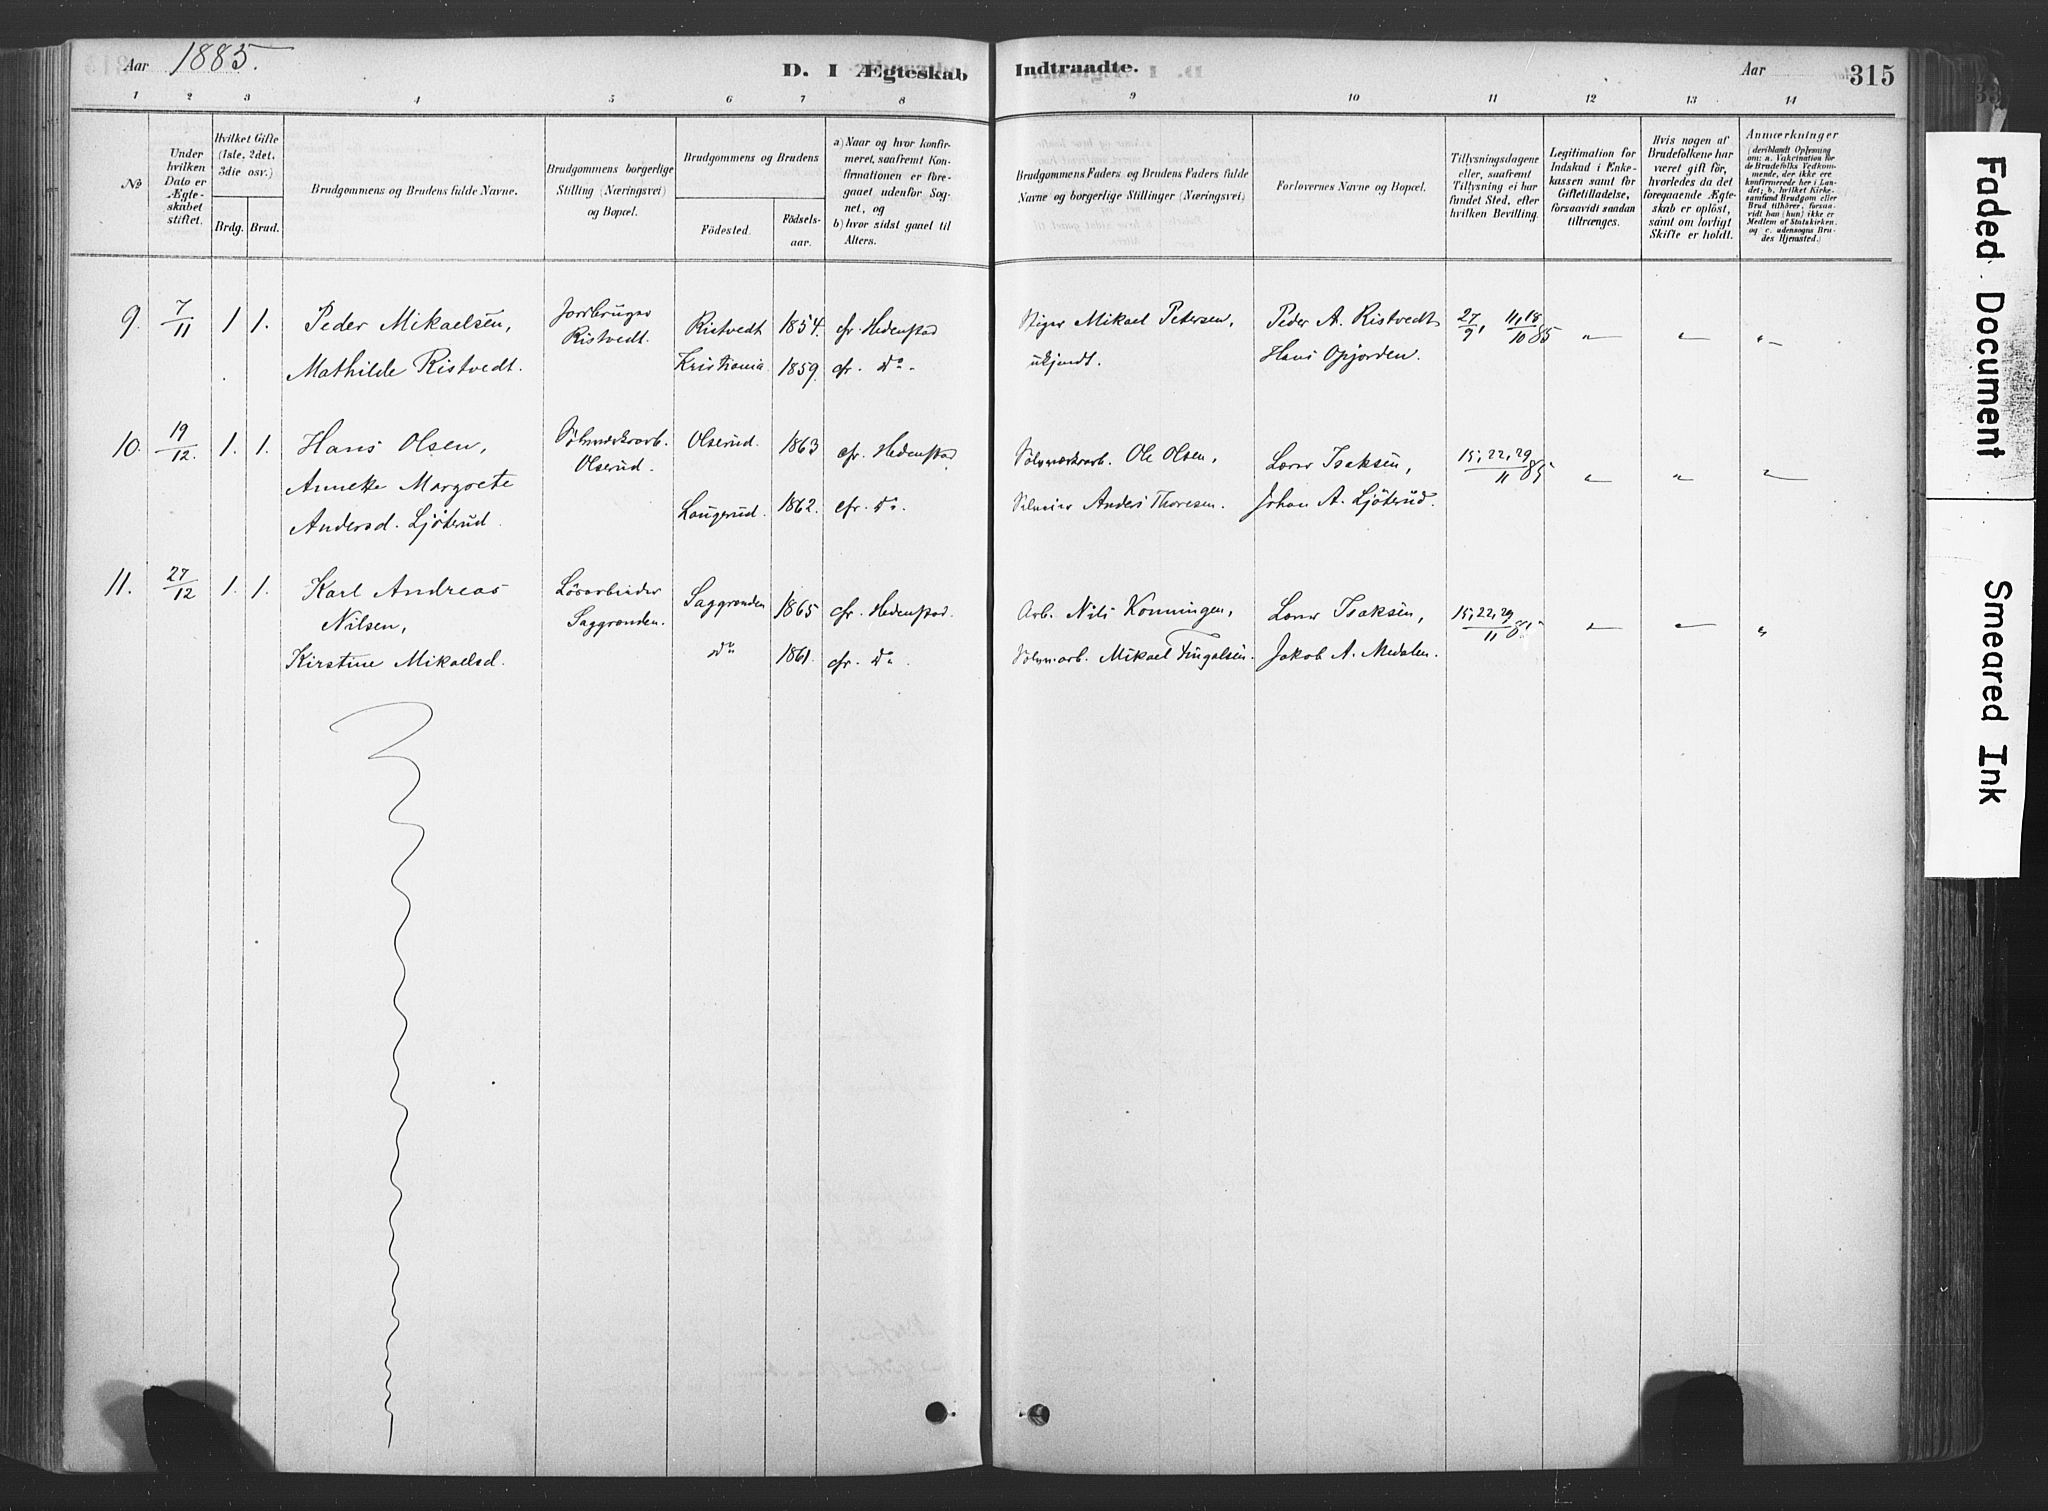 Aar 1885.
D. I Ægteskab Indtraadte.
Aar 315
1 2 3 4 5 6 7 8 9 10 11 12 13 14
№
Under
hvilken
Dato er
Ægte-
skabet
stiftet.
Hvilket Gifte
(1ste, 2det,
3die osv.)
Brdg. Brud.
Brudgommens og Brudens fulde Navne.
Brudgommens borgerlige
Stilling (Næringsvei)
og Bopæl.
Brudgommens og Brudens
Fødested.
Fødsels-
aar.
a) Naar og hvor konfir-
meret, saafremt Kon-
firmationen er fore-
gaaet udenfor Sog-
net, og
b) hvor sidst gaaet til
Alters.
Brudgommens Faders og Brudens Faders fulde
Navne og borgerlige Stillinger (Næringsvei)
Forlovernes Navne og Bopæl.
Tillysningsdagene
eller, saafremt
Tillysning ei har
fundet Sted, efter
hvilken Bevilling.
Legitimation for
Indskud i Enke-
kassen samt for
Giftetilladelse,
forsaavidt saadan
tiltrænges.
Hvis nogen af
Brudefolkene har
været gift før,
hvorledes da det
foregaaende Ægte-
skab er opløst,
samt om lovligt
Skifte er holdt.
Anmærkninger
(deriblandt Oplysning
om: a. Vakcination for
de Brudefolks Vedkom-
mende, der ikke ere
konfirmerede her i Lan-
det; b. hvilket Kirke-
samfund Brudgom eller
Brud tilhører, forsaa-
vidt han (hun) ikke er
Medlem af Statskirken,
og c. udensogns Bru-
des Hjemsted.)
9. 7/11 1 1. Peder Mikaelsen, Jordbruger Ristvedt 1854. cfr. Hedenstad Stiger Mikael Petersen, Peder A. Ristvedt 27/9, 11, 18/10 85 " " "
Ristvedt.
Mathilde Ristvedt. Kristiania 1859. cfr. Do. ukjendt. Hans Opjorden.
10. 19/12. 1. 1. Hans Olsen, Sølvverksarb. Olserud. 1863 cfr. Hedenstad Sølvværksarb. Ole Olsen, Isaksen, 15, 22, 29/11 85 " " "
Olserud.
Annette Margrete
Andersd. Ljøterud. Laugerud. 1862. cfr. Do. Anders Thoresen. Johan A. Ljøterud.
11. 27/12 1. 1. Karl Andreas Løsarbeider Saggrenden 1865 cfr. Hedenstad. Arb. Nils Konningen, Isaksen, 15, 22, 29/11 85 " " "
Nilsen, Saggrenden.
Kirstine Mikaelsd. Do 1861. cfr. Do. Mikael Fingalsen. Jakob A. Medalen.
Faded Document
Smeared Ink